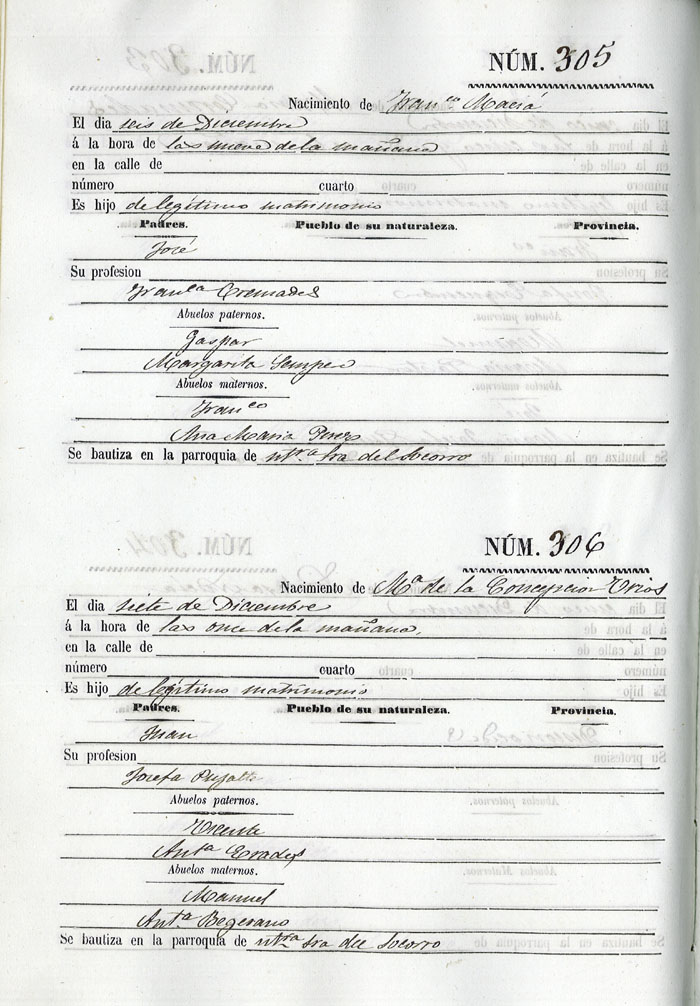 NÚM. 305
Nacimiento de Franco Maciá
El dia seis de Diciembre
á la hora de las nueve de la mañana
en la calle de
número cuarto
Es hijo de legítimo matrimonio
Padres. Pueblo de su naturaleza. Provincia.
José
Su profesion
Franca Cremades
Abuelos paternos.
Gaspar
Margarita Sempere
Abuelos maternos.
Franco
Ana Maria Perez
Se bautiza en la parroquia de ntra Sra del Socorro
NÚM. 306
Nacimiento de Ma de la Concepcion Trios
El dia siete de Diciembre
á la hora de las once de la mañana.
en la calle de
número cuarto
Es hijo de legítimo matrimonio
Padres. Pueblo de su naturaleza. Provincia.
Juan
Su profesion
Josefa Pujalte
Abuelos paternos.
Vicente
Anta Erades
Abuelos maternos.
Manuel
Anta Begerano
Se bautiza en la parroquia de ntra Sra del Socorro